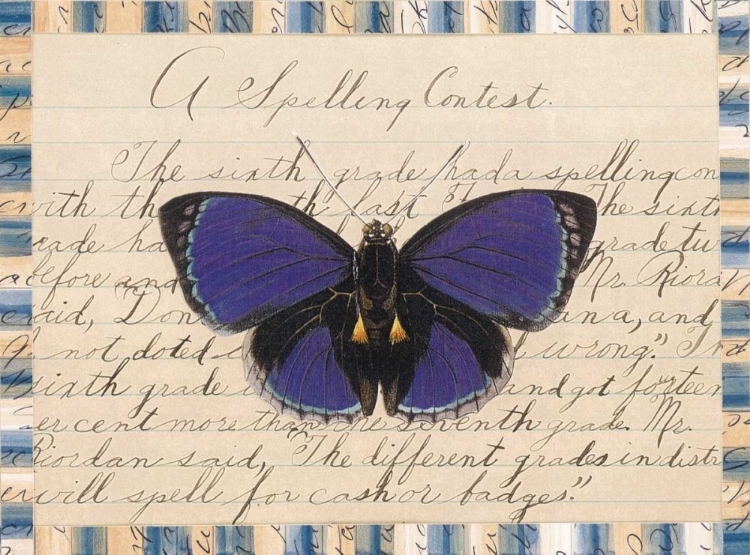 A Spelling Contest.
The sixth grade had a spelling con
with th th last The sixth
rade ha grade tw
efore and Mr. Riora
aid, "Don an a, and
not doted wrong." In
sixth grade and got forteen
er cent more than the seventh grade. Mr.
Riordan said, "The different grades in distr
will spell for cash or badges."